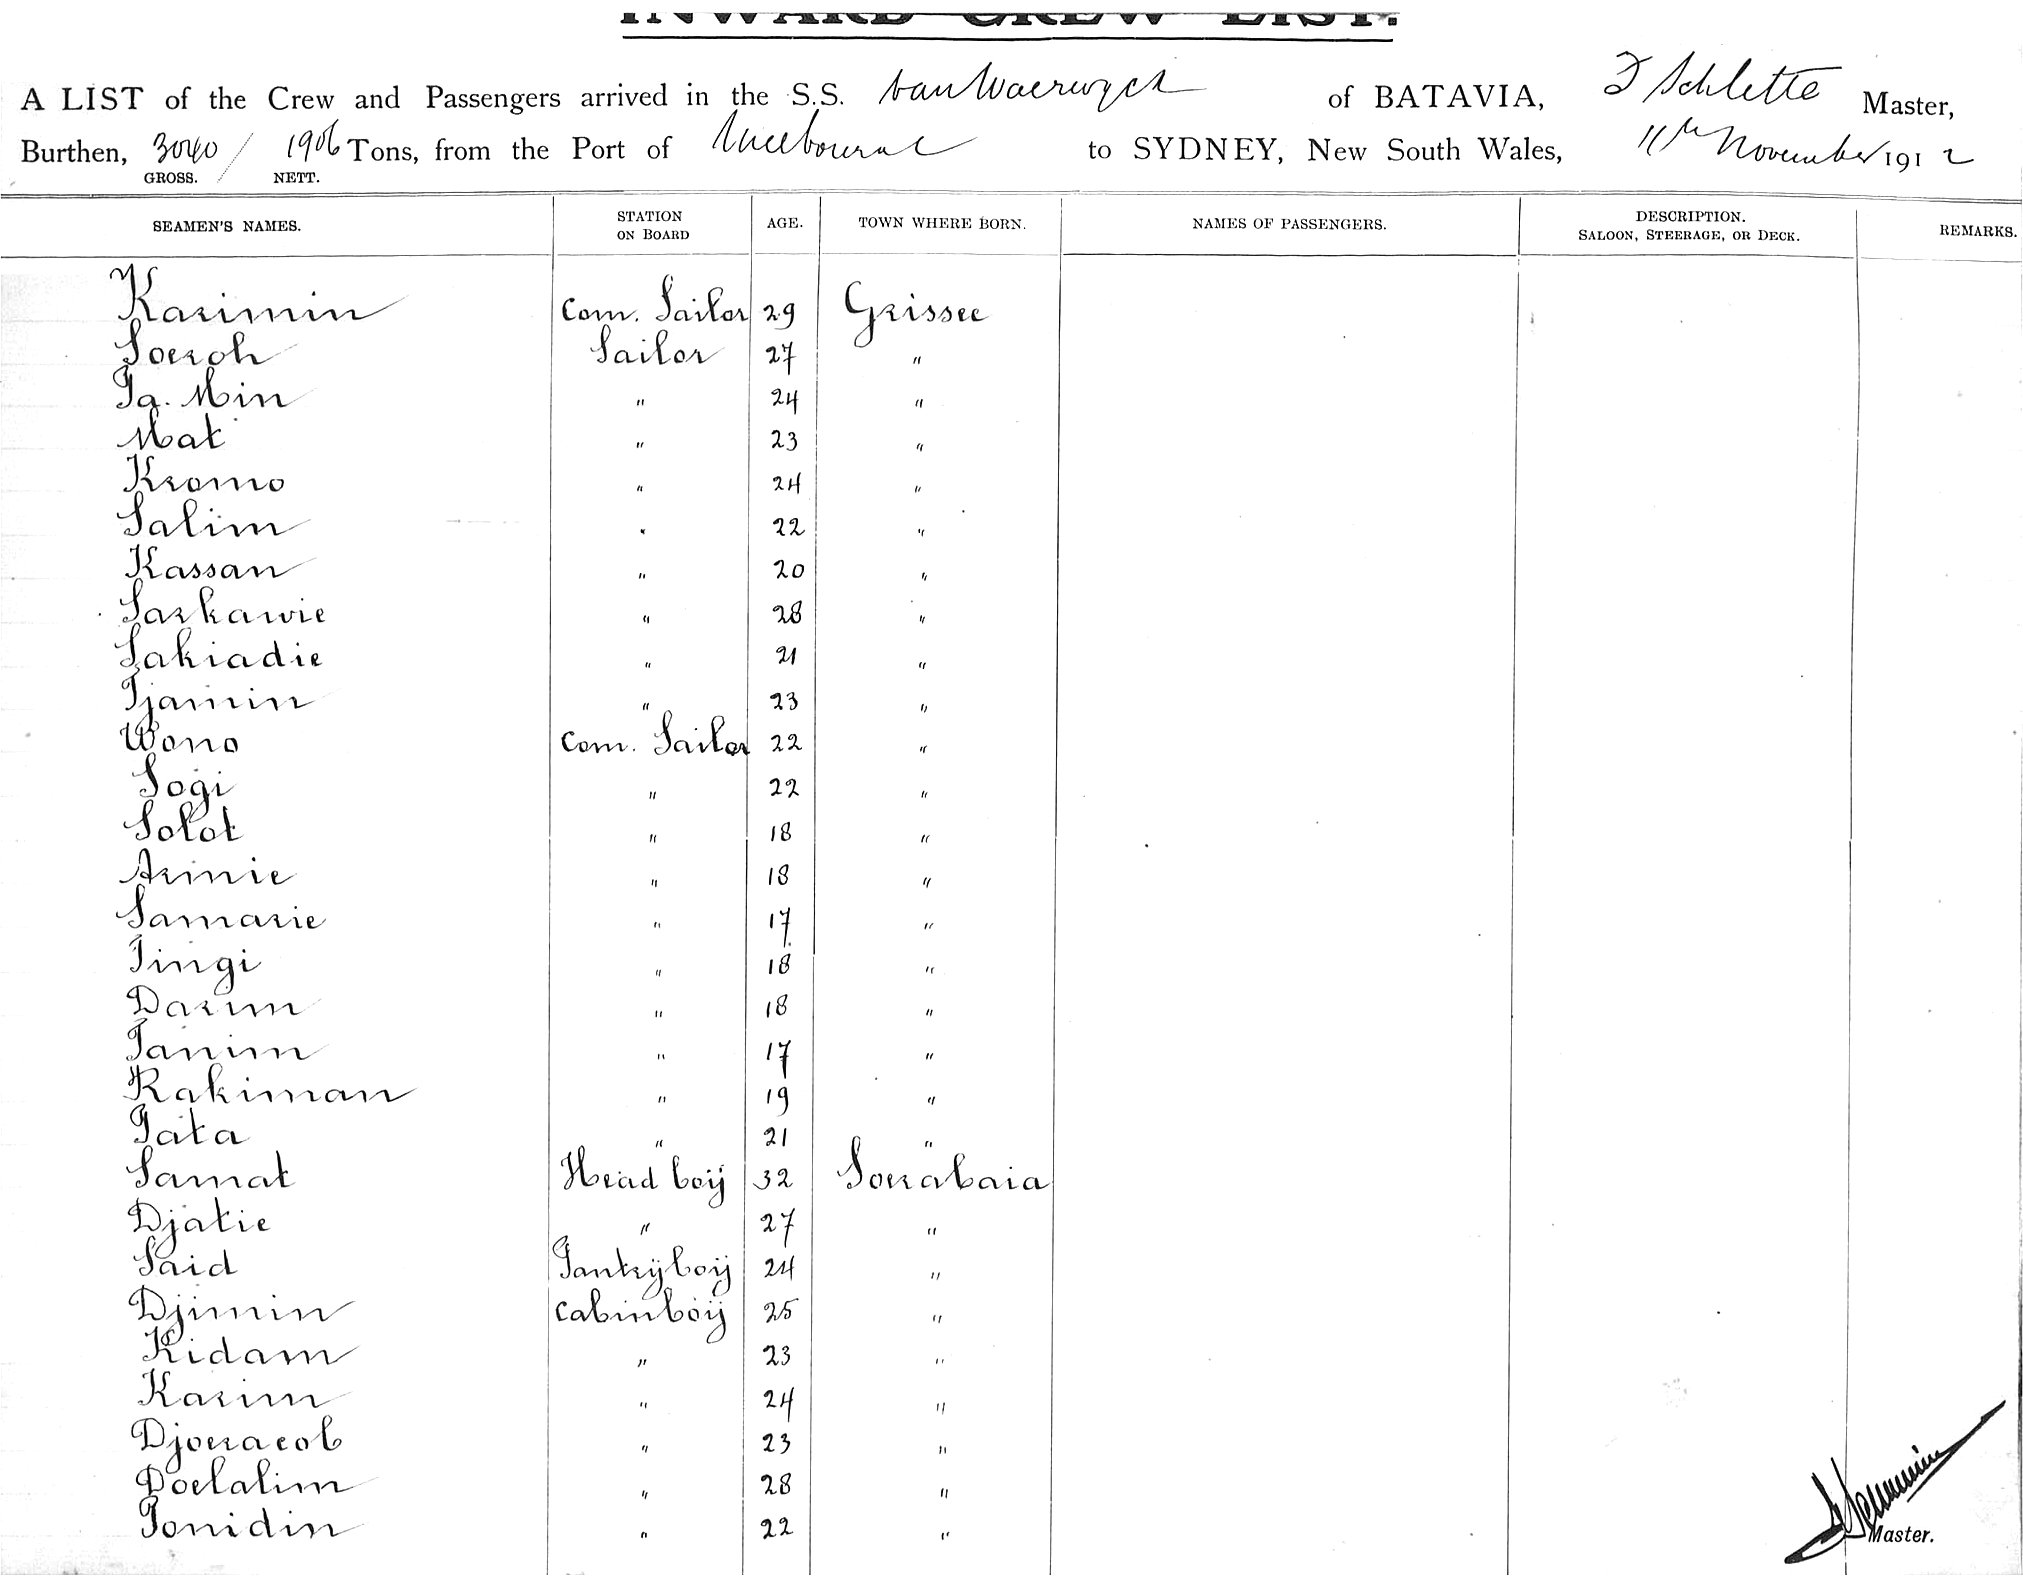 INWARD CREW LIST.
A LIST of the Crew and Passengers arrived in the S.S. van Waerwyck of BATAVIA, Schlette Master,
Burthen, 3040 / 1906 Tons, from the Port of Melbourne to SYDNEY, New South Wales, 11th November 1912
GROSS. NETT.
SEAMEN'S NAMES. STATION ON BOARD AGE. TOWN WHERE BORN. NAMES OF PASSENGERS. DESCRIPTION. SALOON, STEERAGE, OR DECK. REMARKS.
Karimin com. Sailor 29 Grissee
Soeroh Sailor 27 "
Pa. Min " 24 "
Mat " 23 "
Kromo " 24 "
Salim " 22 "
Kassan " 20 "
Sarkawie " 28 "
Sakiadie " 21 "
Tjamin " 23 "
Wono com. Sailor 22 "
Sogi " 22 "
Solot " 18 "
Armie " 18 "
Samarie " 17 "
Tingi " 18 "
Darim " 18 "
Tanim " 17 "
Rakiman " 19 "
Pata " 21 "
Samat Head boij 32 Soerabaia
Djatie " 27 "
Said Pantrijboij 24 "
Djimin cabinboij 25 "
Kidam " 23 "
Karim " 24 "
Djoeracob " 23 "
Doelalim " 28 "
Ponidin " 22 "
Master.